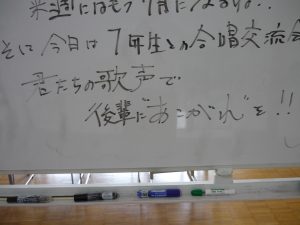 来週にはもう7月になるね!!
そして今日は7年生との合唱交流会
君たちの歌声で
後輩に"あこがれ"を!!